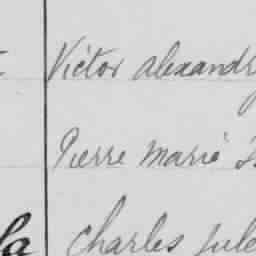 Victor alexandr
Pierre Marie
la Charles Jule